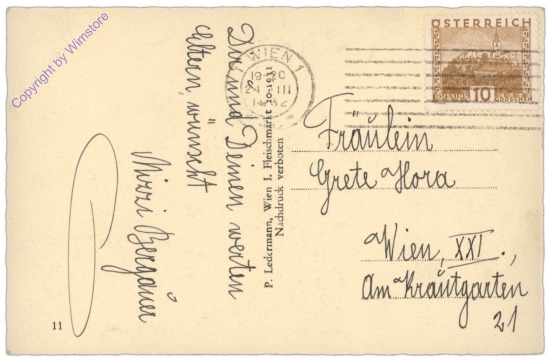 Copyright by Wimstore
Dir und Deinen werten
Eltern, wünscht
Mizzi Bergauer
P. Ledermann, Wien I, Fleischmarkt 20-1931
Nachdruck verboten
11
WIEN 1
24 III
ÖSTERREICH
GÜSSING 10 GROSCHEN
Fräulein
Grete Hora
Wien, XXI.,
Am Krautgarten
21